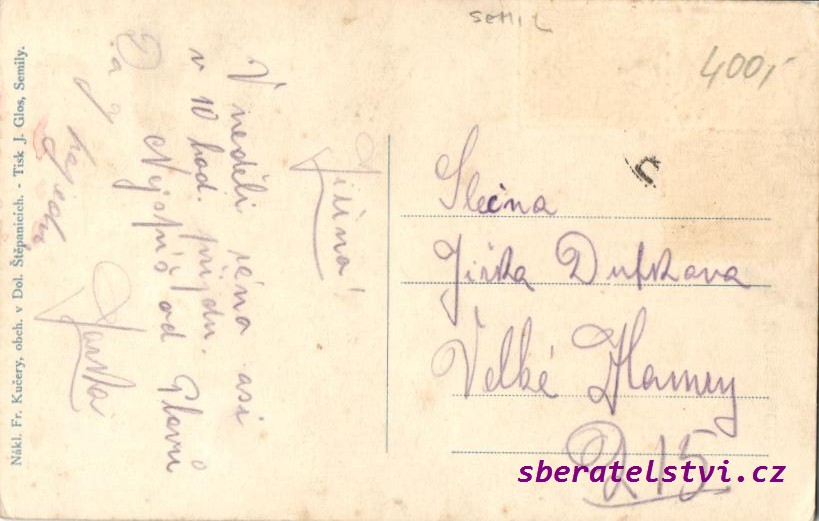 SEMIL
400,-
Nákl. Fr. Kučery, obch. v Dol. Štěpanicích. - Tisk J. Glos, Semily.
Jiřina!
V neděli réna asi
v 10 hod. přijdu.
od
Jarka
Slečna
Jirka Dufkova
Velké Hamry
215
sberatelstvi.cz